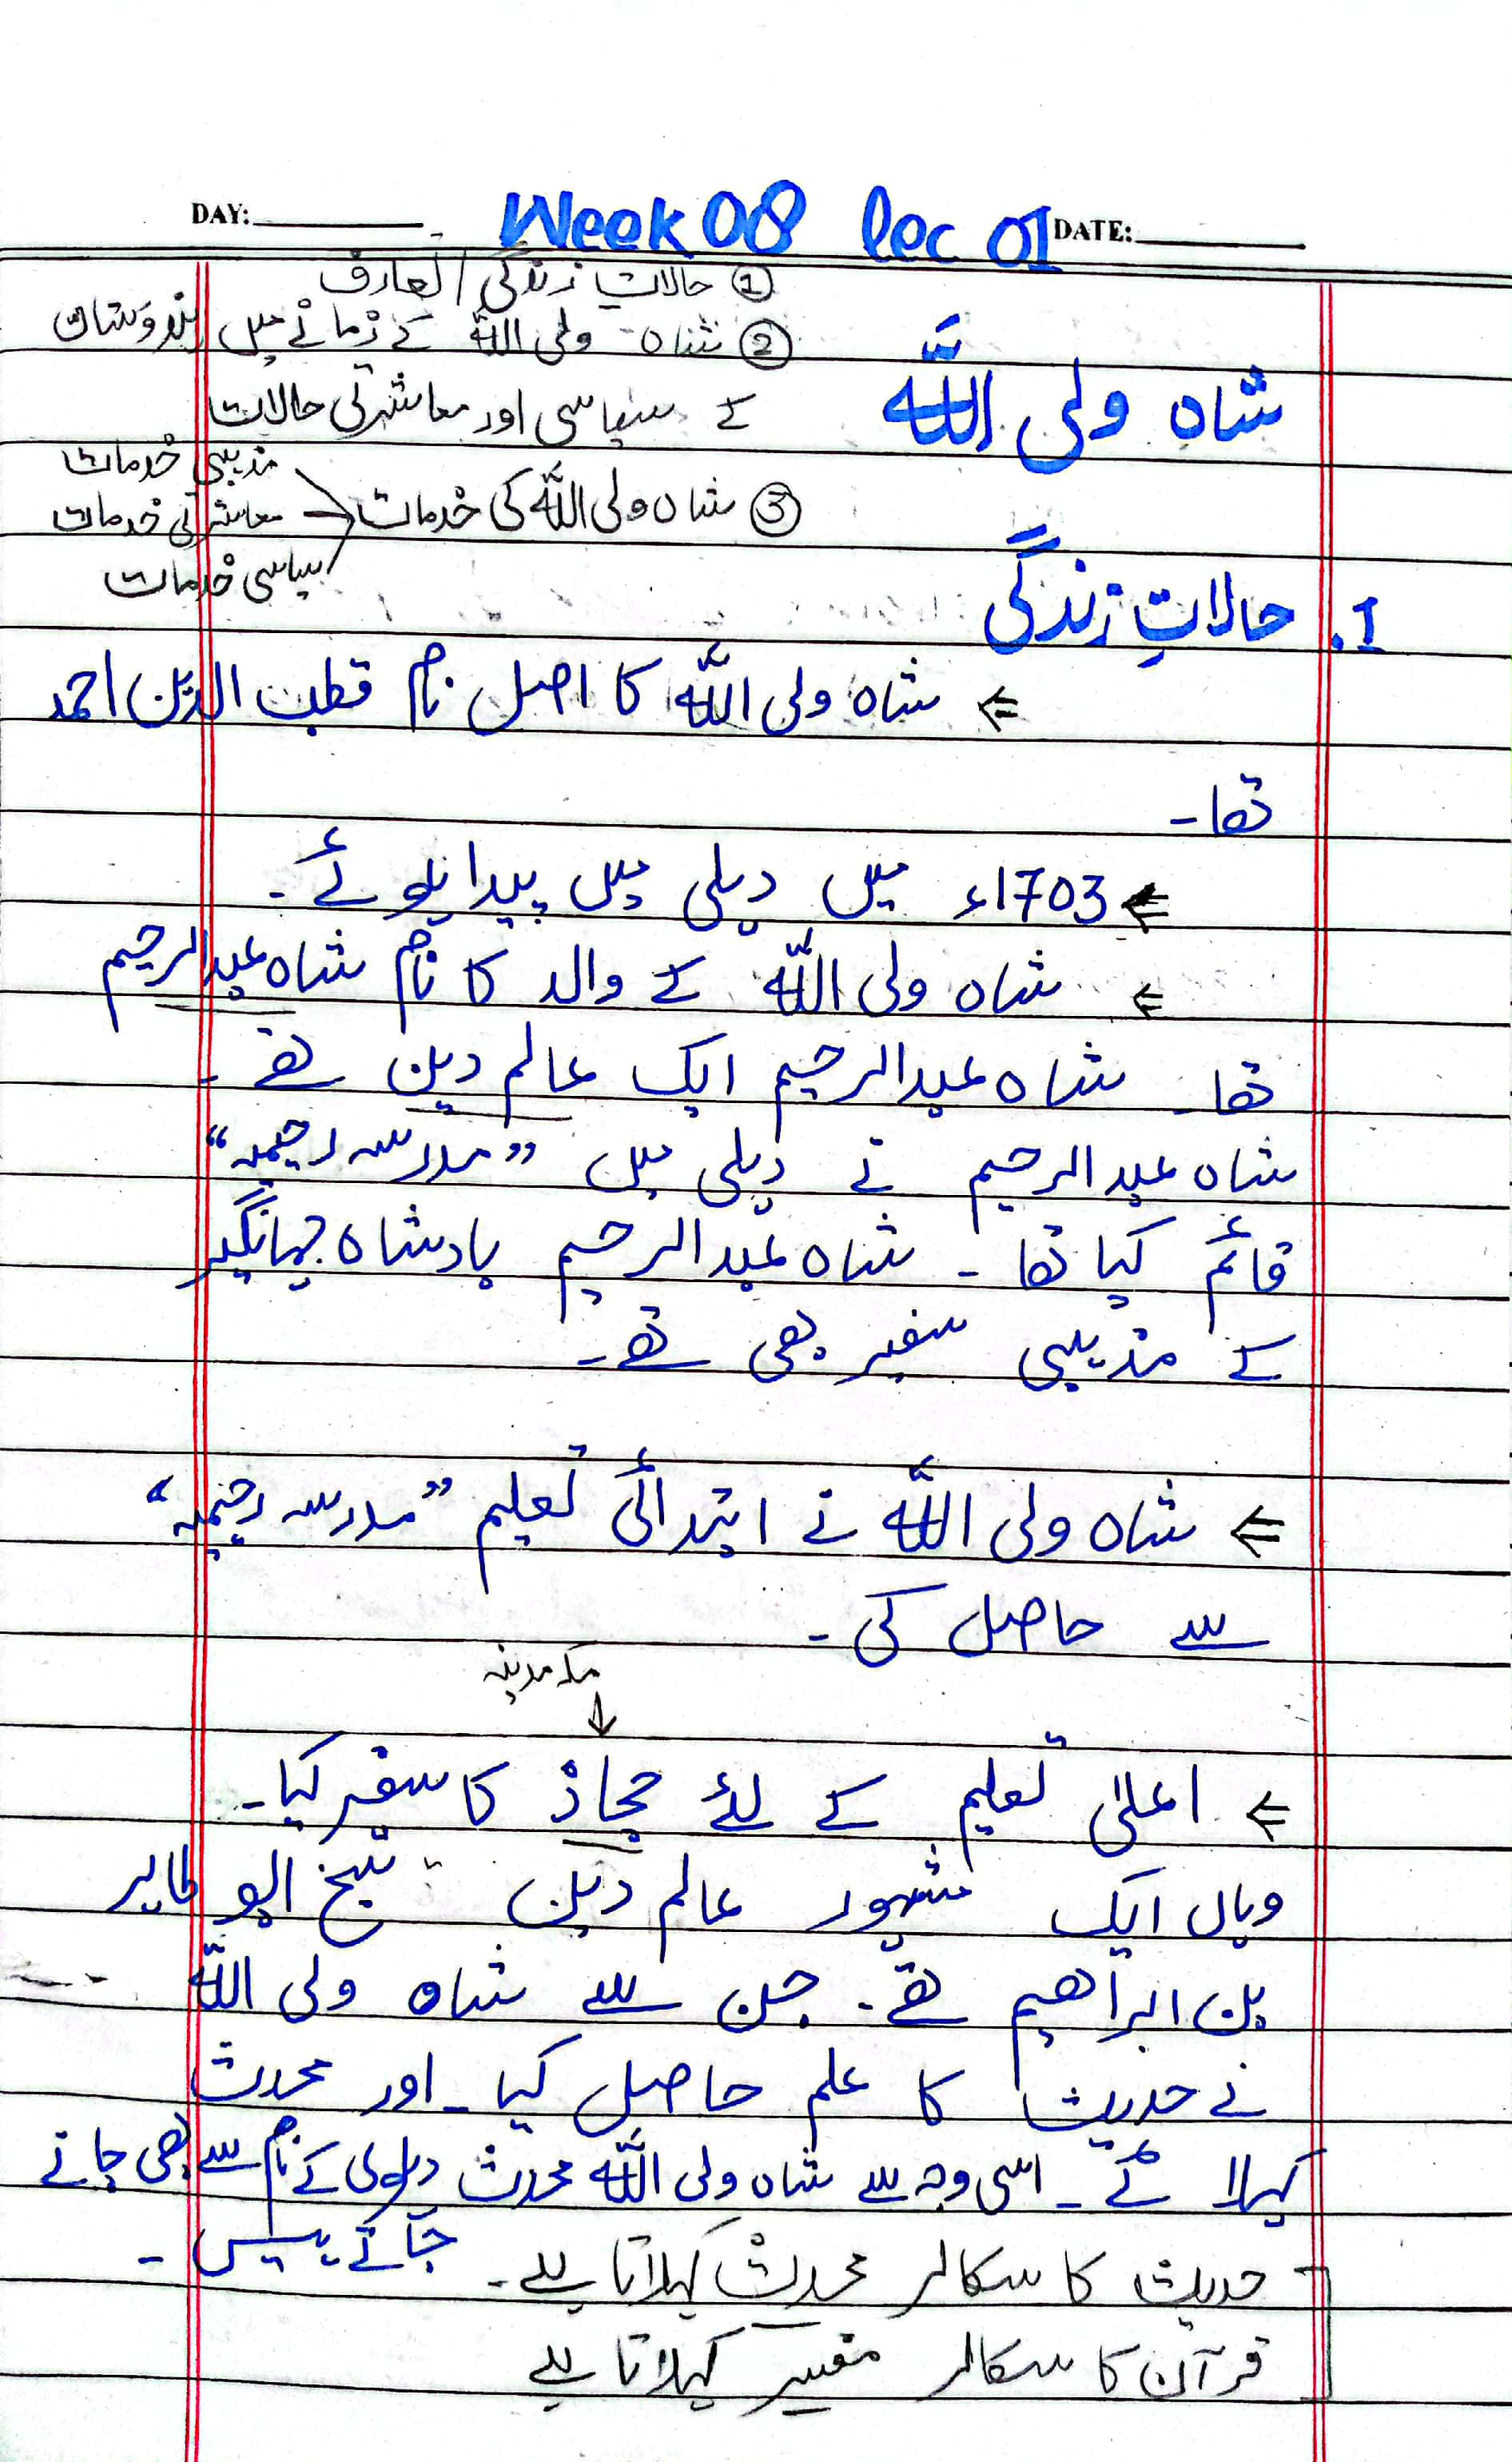 DAY: Week 08 lec 01 DATE:
① حالاتِ زندگی / تعارف
② شاہ ولی اللہ کے زمانے میں ہندوستان
کے سیاسی اور معاشرتی حالات
③ شاہ ولی اللہ کی خدمات
مذہبی خدمات
معاشرتی خدمات
سیاسی خدمات
شاہ ولی اللہ
1. حالاتِ زندگی
⇐ شاہ ولی اللہ کا اصل نام قطب الدین احمد
تھا۔
⇐ 1703ء میں دہلی میں پیدا ہوئے۔
⇐ شاہ ولی اللہ کے والد کا نام شاہ عبدالرحیم
تھا۔ شاہ عبدالرحیم ایک عالم دین تھے۔
شاہ عبدالرحیم نے دہلی میں ”مدرسہ رحیمیہ“
قائم کیا تھا۔ شاہ عبدالرحیم بادشاہ جہانگیر
کے مذہبی سفیر بھی تھے۔
⇐ شاہ ولی اللہ نے ابتدائی تعلیم ”مدرسہ رحیمیہ“
سے حاصل کی۔
مکہ مدینہ
↓
⇐ اعلیٰ تعلیم کے لئے حجاز کا سفر کیا۔
وہاں ایک مشہور عالم دین شیخ ابو طاہر
بن ابراھیم تھے۔ جن سے شاہ ولی اللہ
نے حدیث کا علم حاصل کیا۔ اور محدث
کہلائے۔ اسی وجہ سے شاہ ولی اللہ محدث دہلوی کے نام سے بھی جانے
جاتے ہیں۔
حدیث کا سکالر محدث کہلاتا ہے۔
قرآن کا سکالر مفسر کہلاتا ہے